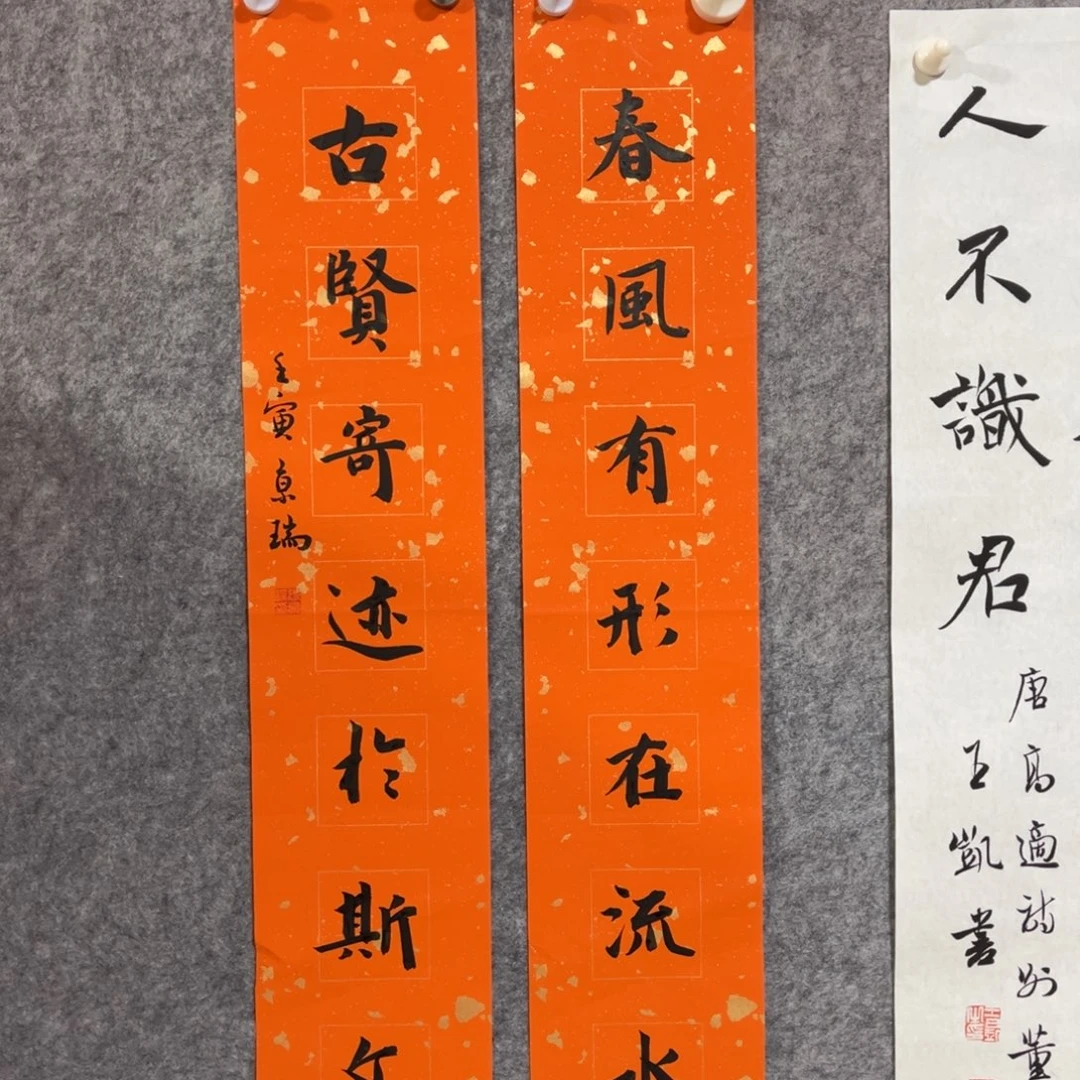 人不識君
唐高適詩別董
王凱書
春風有形在流水
古賢寄迹於斯文
壬寅京瑞